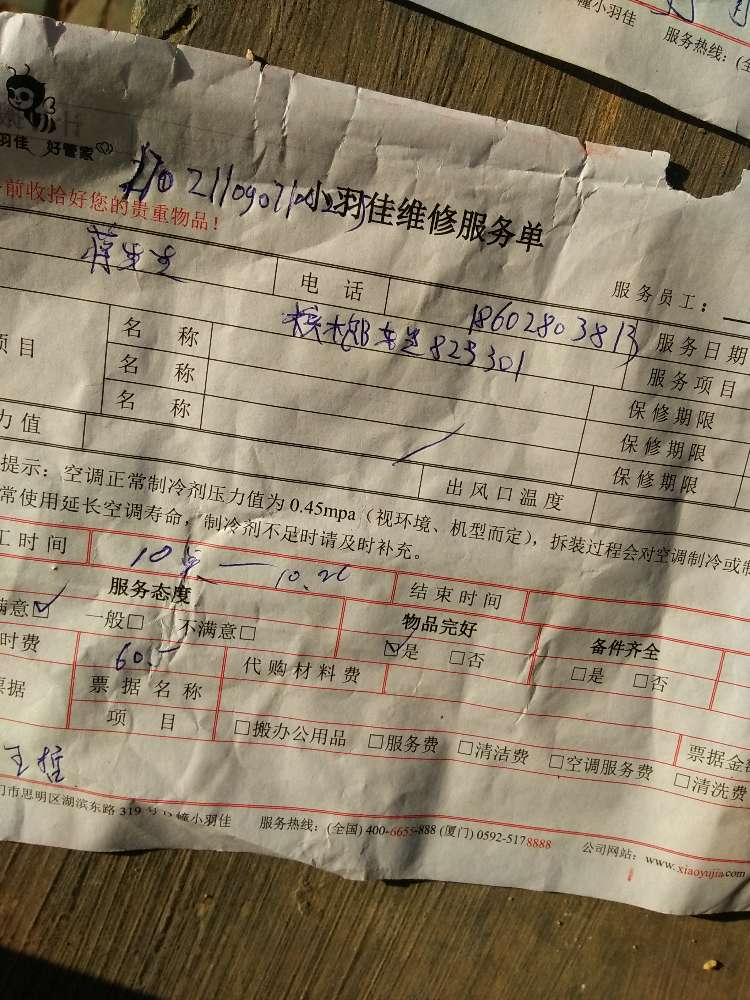 幢小羽佳 服务热线：(全
羽佳 好管家
前收拾好您的贵重物品！
小羽佳维修服务单
蒋先生 电 话 18602803813 服务员工：
项目 名 称 服务日期
825301
名 称 服务项目
名 称 保修期限
保修期限
保修期限
力值 出风口温度
提示：空调正常制冷剂压力值为 0.45mpa（视环境、机型而定），拆装过程会对空调制冷或制
常使用延长空调寿命，制冷剂不足时请及时补充。
工时间 结束时间
服务态度 物品完好 备件齐全
满意☑ 一般□ 不满意□ ☑是 □否 □是 □否
时费 60.- 代购材料费
票据 票据名称 票据金额
项 目 □搬办公用品 □服务费 □清洁费 □空调服务费 □清洗费
王哲
门市思明区湖滨东路 319 号 幢小羽佳 服务热线：(全国) 400-6655-888 (厦门) 0592-5178888 公司网站：www.xiaoyujia.com